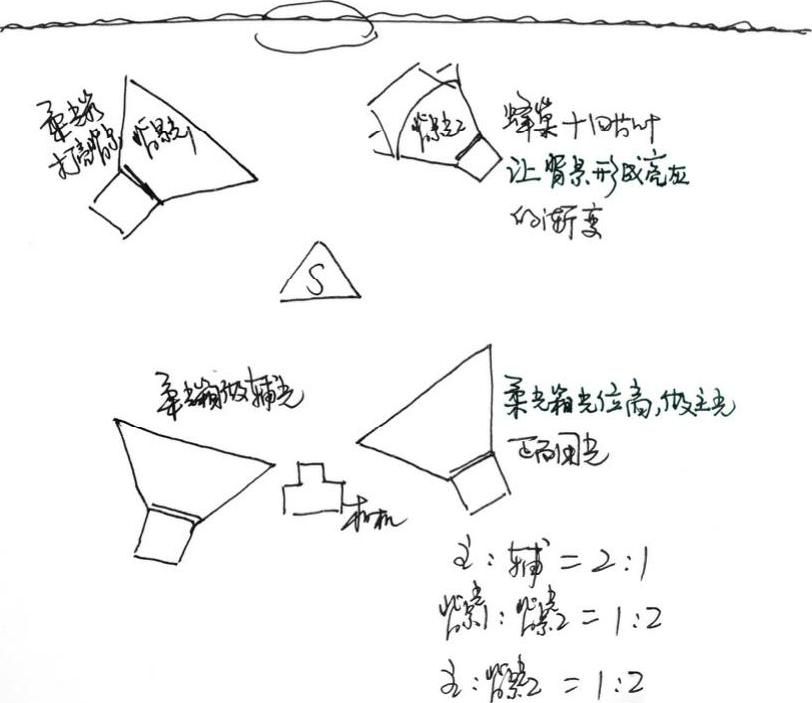 柔光箱
打亮背景
背景光1
背景光2
蜂巢+四片叶
让背景形成亮灰
的渐变
S
柔光箱做辅光
柔光箱光位高,做主光
正面用光
相机
主:辅=2:1
背景光1:背景光2=1:2
主:背景光2=1:2